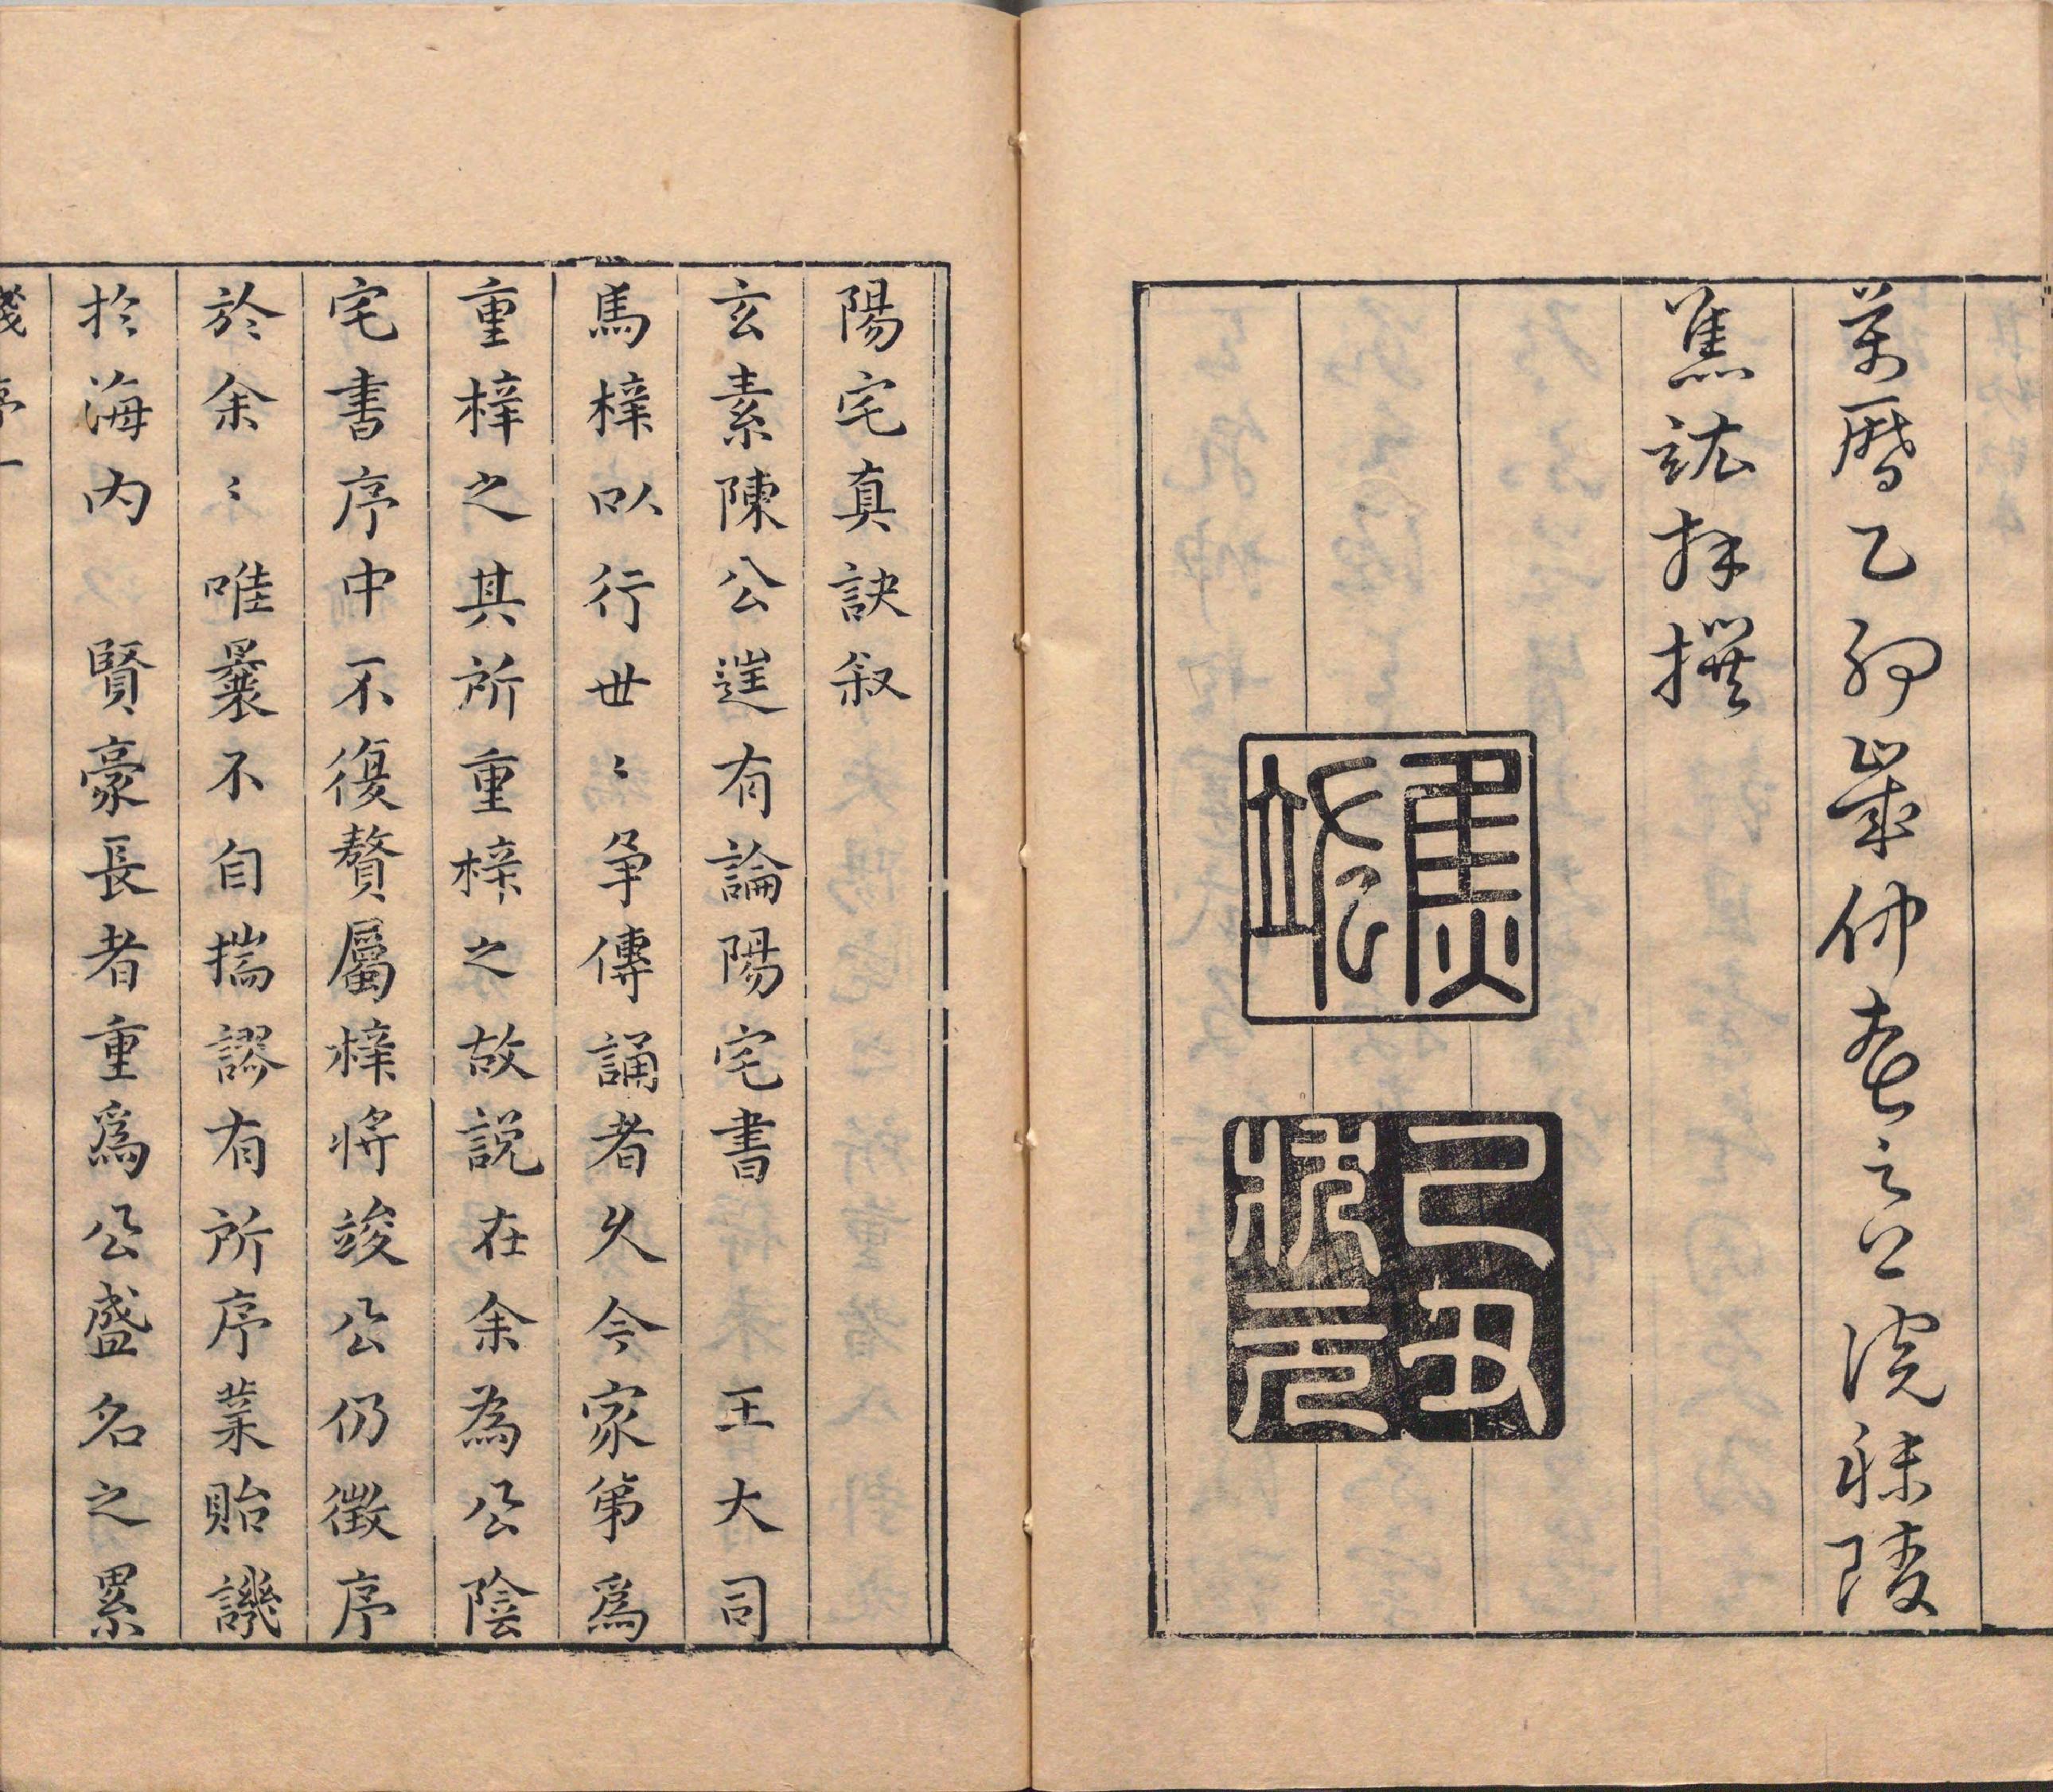 萬曆乙卯歲仲春之上浣秣陵
焦竑拜撰
焦竑
己丑
狀元
陽宅真訣叙
玄素陳公有論陽宅書 王大司
馬梓以行世〻争傳誦者久今家第爲
重梓之其所重梓之故説在余為公陰
宅書序中不復贅屬梓將竣公仍徵序
於余〻唯曩不自揣謬有所序業貽譏
扵海内 賢豪長者重爲公盛名之累
序一